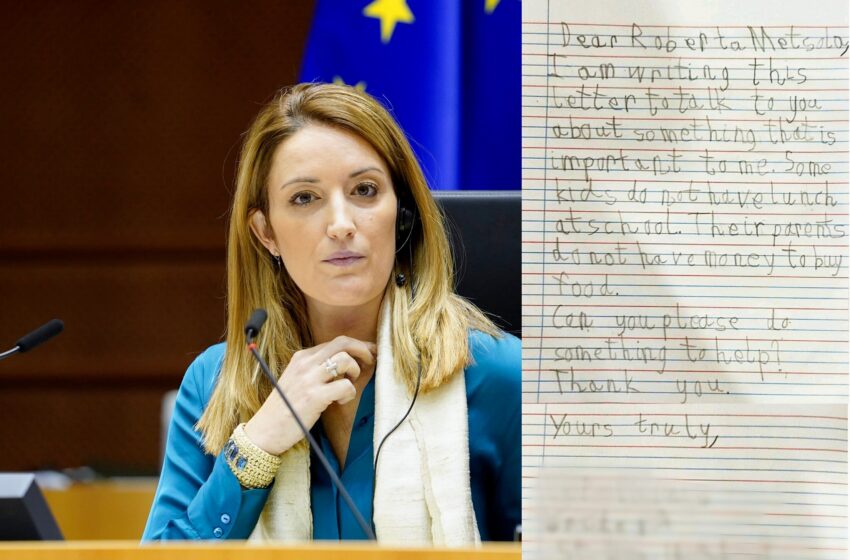 Dear Roberta Metsola,
I am writing this
letter to talk to you
about something that is
important to me. Some
kids do not have lunch
at school. Their parents
do not have money to buy
food.
Can you please do
something to help?
Thank you.
Yours truly,